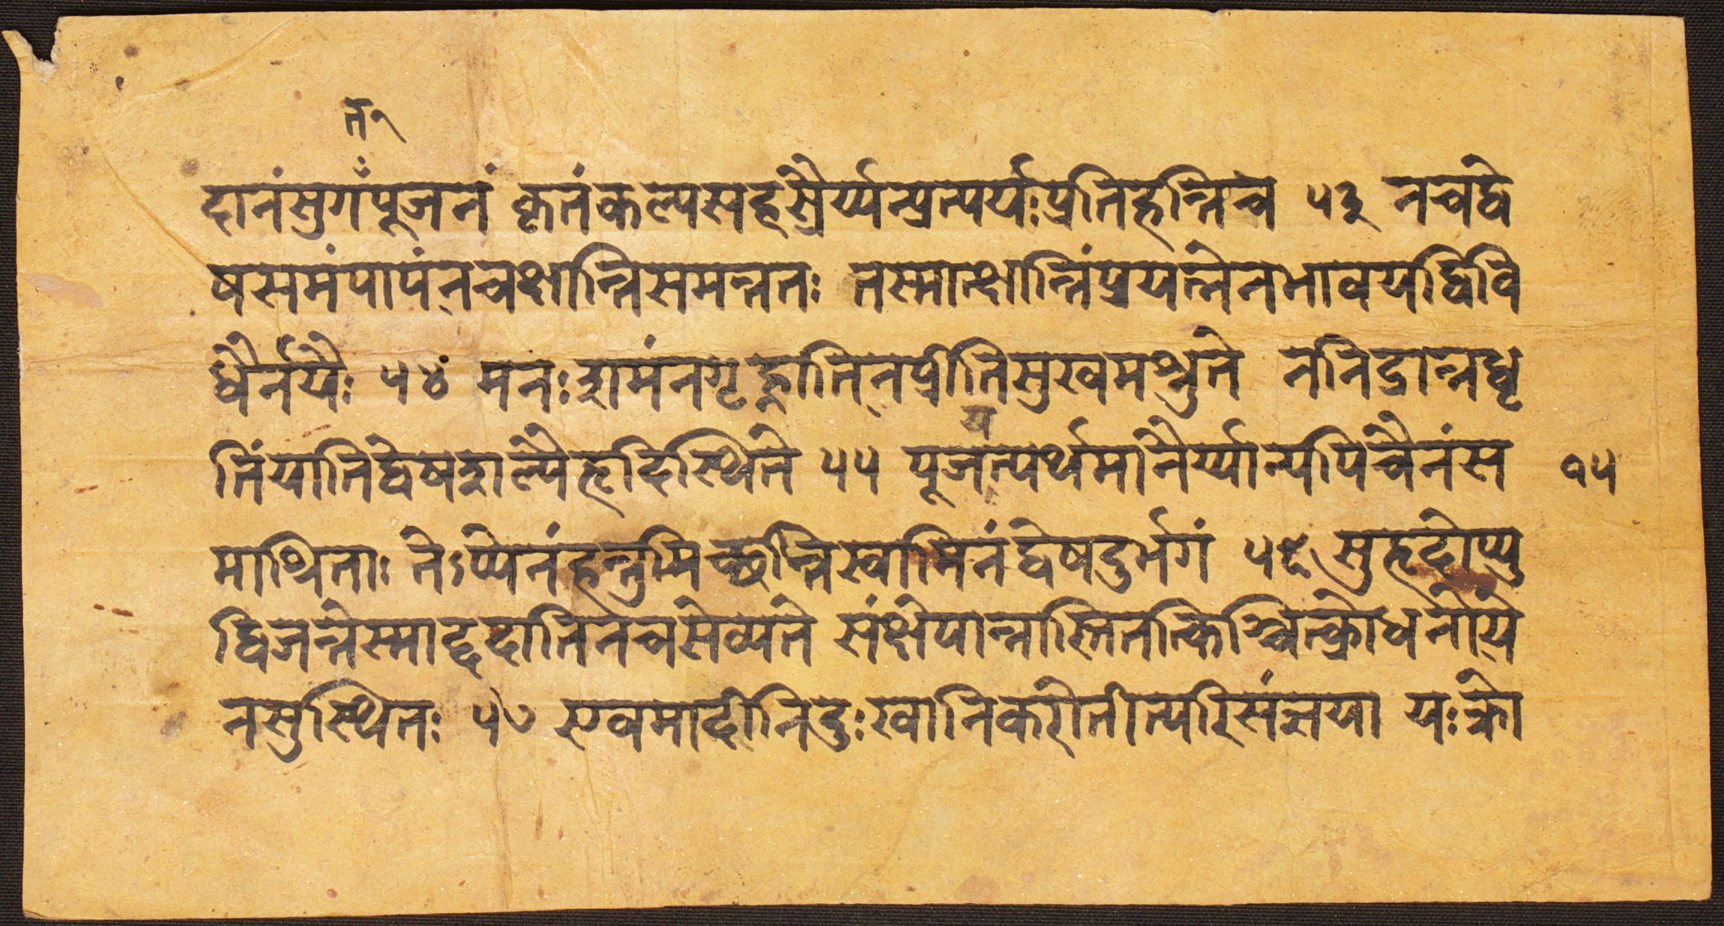 त१
दानंसुगँपूजनं कृतंकल्पसहस्रैर्य्यत्प्रत्पर्यःप्रतिहन्तिच ५३ नचद्वे
षसमंपापंनचक्षान्तिसमन्नतः तस्मात्क्षान्तिंप्रयत्नेनभावयद्विवि
धैर्नयैः ५४ मनःशमंनगृह्णातिनप्रीतिसुखमश्नुते ननिद्रान्नधृ
तिंयातिद्वेषशल्पैहृदिस्थिते ५५ पूजत्पर्थमानैर्य्यान्यपिचैनंस
य
१५
माश्रिताः तेऽप्येनंहन्तुमिच्छन्तिस्वामिनंद्वेषदुर्भगं ५६ सुहृदोप्यु
द्विजन्तेस्माद्ददातिनचसेव्यते संक्षेपान्नास्तितत्किञ्चित्क्रोधनोये
नसुस्थितः ५७ एवमादीनिदुःखानिकरोतीत्यरिसंज्ञया यःक्रो